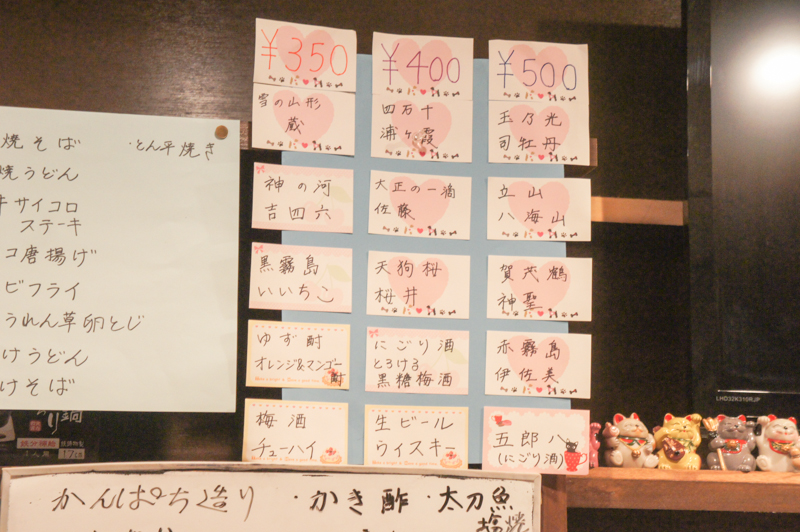 焼そば ・とん平焼き
焼うどん
サイコロ
ステーキ
コ唐揚げ
ビフライ
うれん草卵とじ
けうどん
けそば
¥350
雪の山形
蔵
神の河
吉四六
黒霧島
いいちこ
ゆず酎
オレンジ&マンゴー
酎
梅酒
チューハイ
¥400
四万十
浦ヶ霞
大正の一滴
佐藤
天狗桜
桜井
にごり酒
とろける
黒糖梅酒
生ビール
ウィスキー
¥500
玉乃光
司牡丹
立山
八海山
賀茂鶴
神聖
赤霧島
伊佐美
五郎八
(にごり酒)
LHD32K310RJP
かんぱち造り ・かき酢 ・太刀魚
塩焼